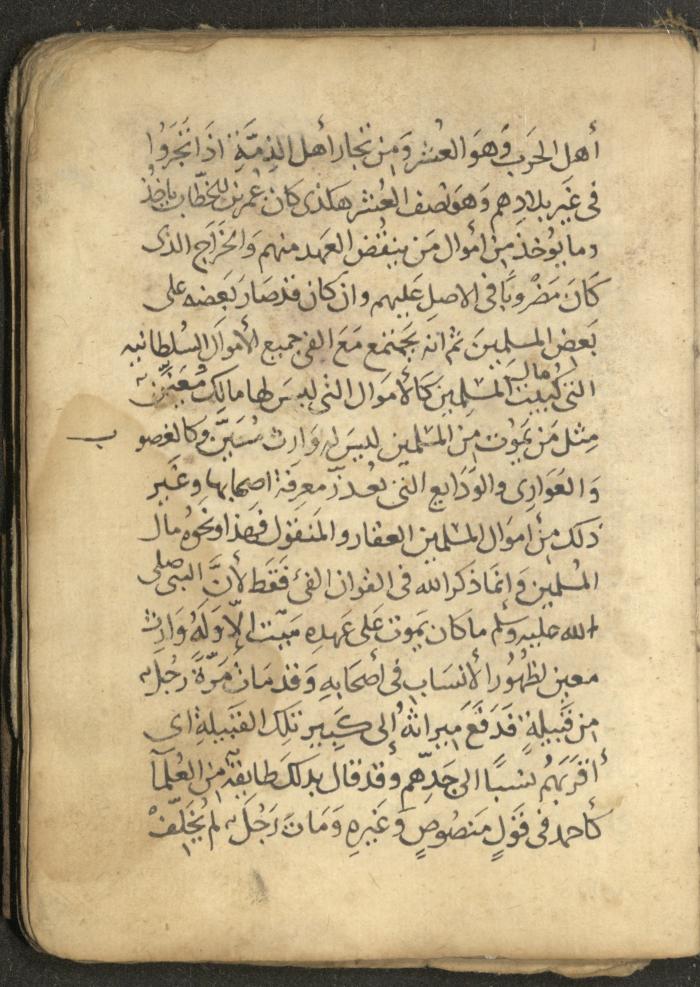 أهل الحرب وهو العشر ومن تجار أهل الذمة اذا اتجروا
في غير بلادهم وهو نصف العشر هكذى كان عمر بن الخطاب ياخذ
وما يؤخذ من أموال من ينقض العهد منهم والخراج الذى
كان مضروبا فى الاصل عليهم وان كان قد صار بعضه على
بعض المسلمين ثم انه يجتمع مع الفى جميع الأموال السلطانيه
التى لبيت مال المسلمين كالأموال التى ليس لها مالك معين
مثل من يموت من المسلمين ليس له وارث معين وكالغصوب
والعوارى والودايع التى تعذر معرفة اصحابها وغير
ذلك من اموال المسلمين العقار والمنقول فهذا ونحوه مال
المسلمين وانما ذكر الله فى القران الفئ فقط لأن النبى صلى
الله عليه وسلم ما كان يموت على عهده ميت إلا وله وارث
معين لظهور الأنساب فى أصحابه وقد مات مرة رجل
من قبيلة فدفع ميراثه إلى كبير تلك القبيلة اى
أقربهم نسبا الى جدهم وقد قال بذلك طايفة من العلما
كأحمد فى قول منصوص وغيره ومات رجل لم يخلف